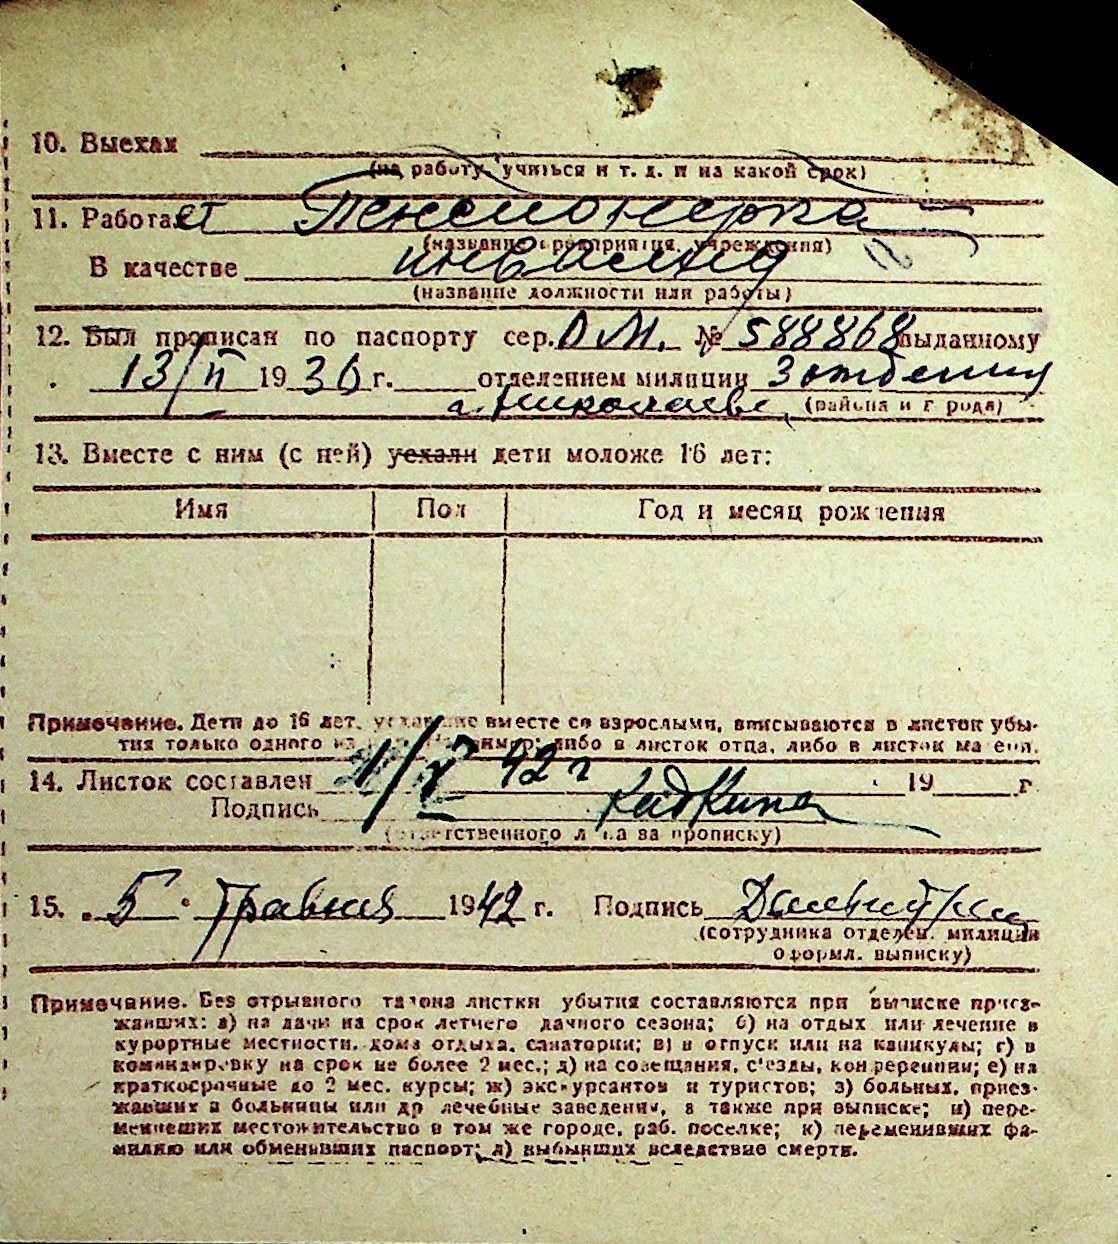 10. Выехал
(на работу, учиться и т. д. и на какой срок)
11. Работает Пенсионерка
(название предприятия, учреждения)
В качестве инвалид
(название должности или работы)
12. Был прописан по паспорту сер. О М. № 588868 выданному
13/II 1936 г. отделением милиции 3 отделения
г. Николаева (района и города)
13. Вместе с ним (с ней) уехали дети моложе 16 лет:
Имя Пол Год и месяц рождения
Примечание. Дети до 16 лет, уехавшие вместе со взрослыми, вписываются в листок убы-
тия только одного из них, например: либо в листок отца, либо в листок матери.
14. Листок составлен 1/V 42 г 19 г
Подпись
(ответственного лица за прописку)
15. „5" Травня 1942 г. Подпись
(сотрудника отделен. милиции
оформл. выписку)
Примечание. Без отрывного талона листки убытия составляются при выписке приез-
жавших: а) на дачи на срок летнего дачного сезона; б) на отдых или лечение в
курортные местности, дома отдыха, санатории; в) в отпуск или на каникулы; г) в
командировку на срок не более 2 мес.; д) на совещания, с'езды, конференции; е) на
краткосрочные до 2 мес. курсы; ж) экскурсантов и туристов; з) больных, приез-
жавших в больницы или др лечебные заведения, а также при выписке; и) пере-
менивших местожительство в том же городе, раб. поселке; к) переменивших фа-
милию или обменявших паспорт; л) выбывших вследствие смерти.